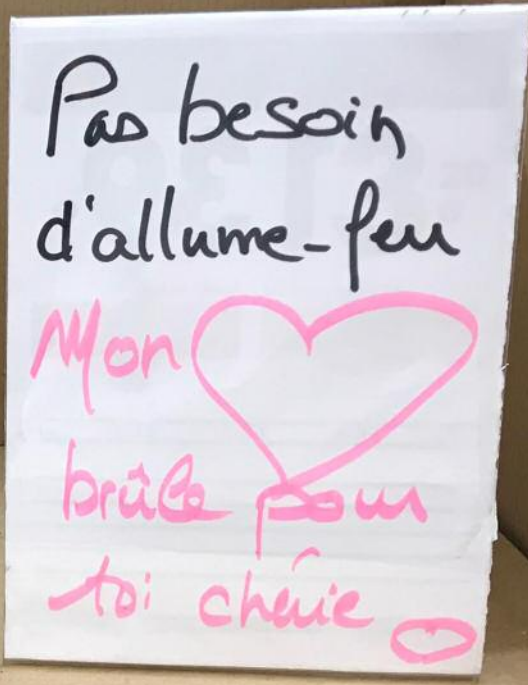 Pas besoin
d'allume-feu
Mon
brûle pour
toi chérie